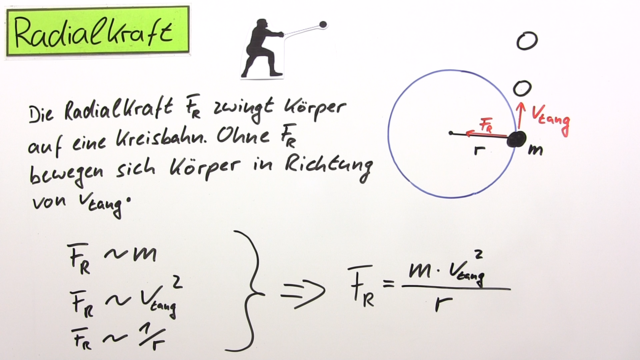 Radialkraft
Die Radialkraft F_R zwingt Körper
auf eine Kreisbahn. Ohne F_R
bewegen sich Körper in Richtung
von v_tang.
F_R
v_tang
r
m
F_R ~ m
F_R ~ v_tang²
F_R ~ 1/r
=> F_R = m · v_tang² / r